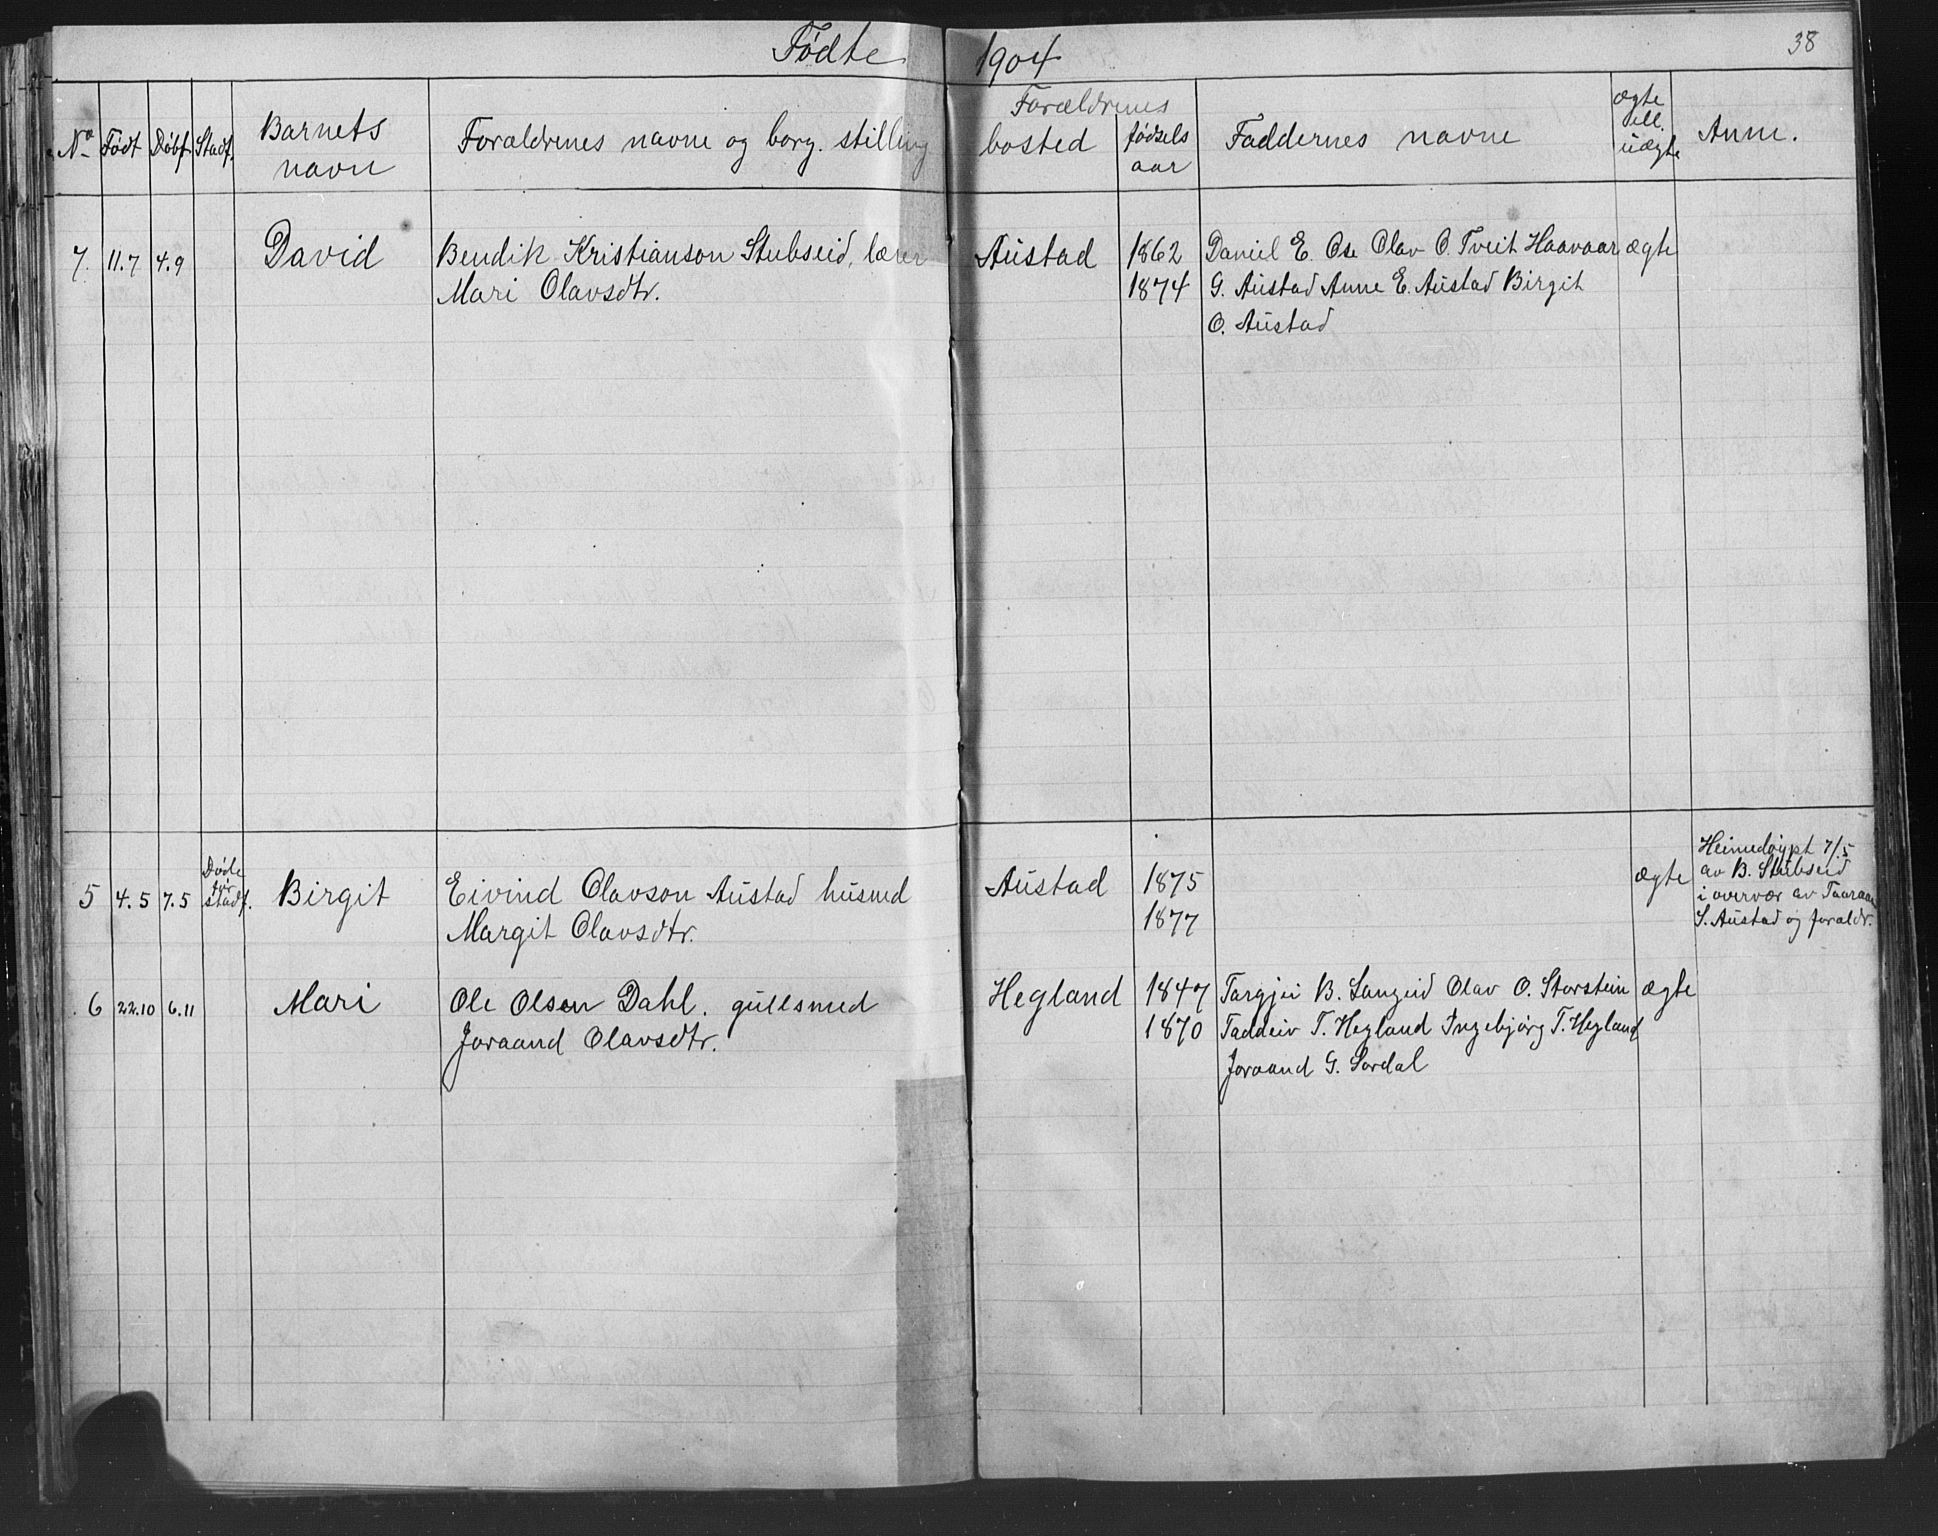 Fødte 1904
38
No Født Døbt Stadf. Barnets navn Forældrenes navne og borg. stilling Forældrenes bosted fødsels aar Faddernes navne ægte ell. uægte Anm.
7. 11.7 4.9 David Bendik Kristianson Stubseid, lærer Austad 1862 Daniel E. Ose Olav O. Tveit Haavaar ægte
Mari Olavsdtr. 1874 G. Austad Anne E. Austad Birgit
O. Austad
5 4.5 7.5 Døde før stadf. Birgit Eivind Olavson Austad husmd Austad 1875 ægte
Margit Olavsdtr. 1877
Heimedøypt 7/5
av B. Stubseid
i overvær av Taaraan
S. Austad og foraldr.
6 22.10 6.11 Mari Ole Olsen Dahl. gullsmed Hegland 1847 Targjei B. Langeid Olav O. Storstein ægte
Joraand Olavsdtr. 1870 Taddeiv T. Hegland Ingebjørg T. Hegland
Joraand G. Sordal